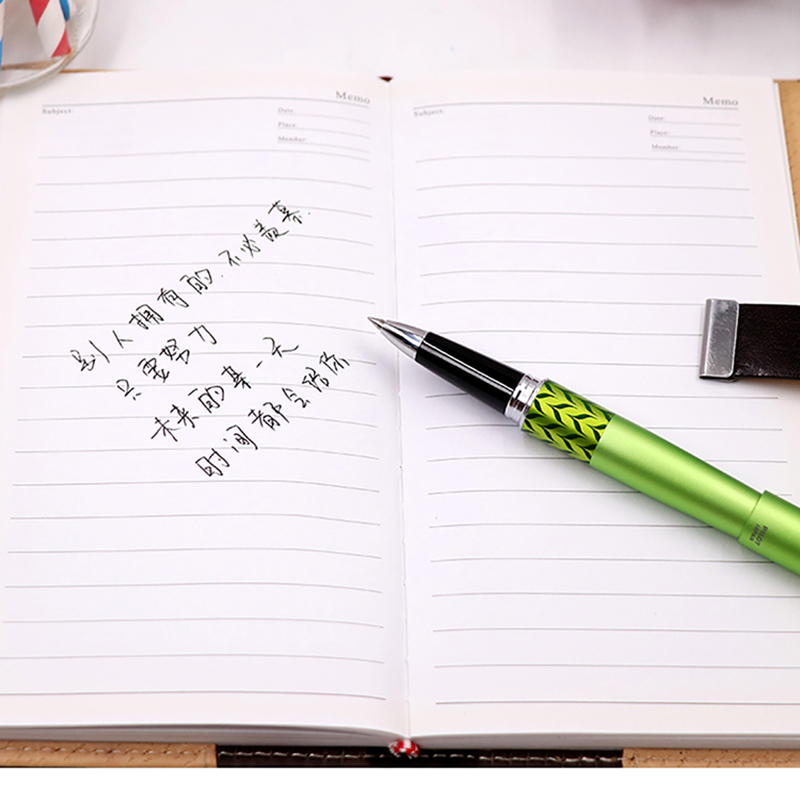 Memo
Subject:
Date:
Place:
Member:
别人拥有的.不必羡慕.
只要努力
未来的某一天
时间都会给你
Memo
Subject:
Date:
Place:
Member:
PILOT
JAPAN